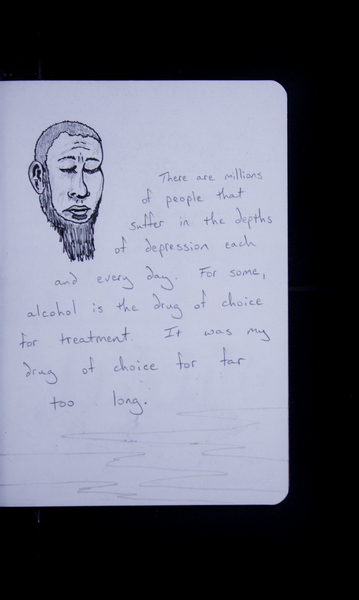 There are millions
of people that
suffer in the depths
of depression each
and every day. For some,
alcohol is the drug of choice
for treatment. It was my
drug of choice for far
too long.